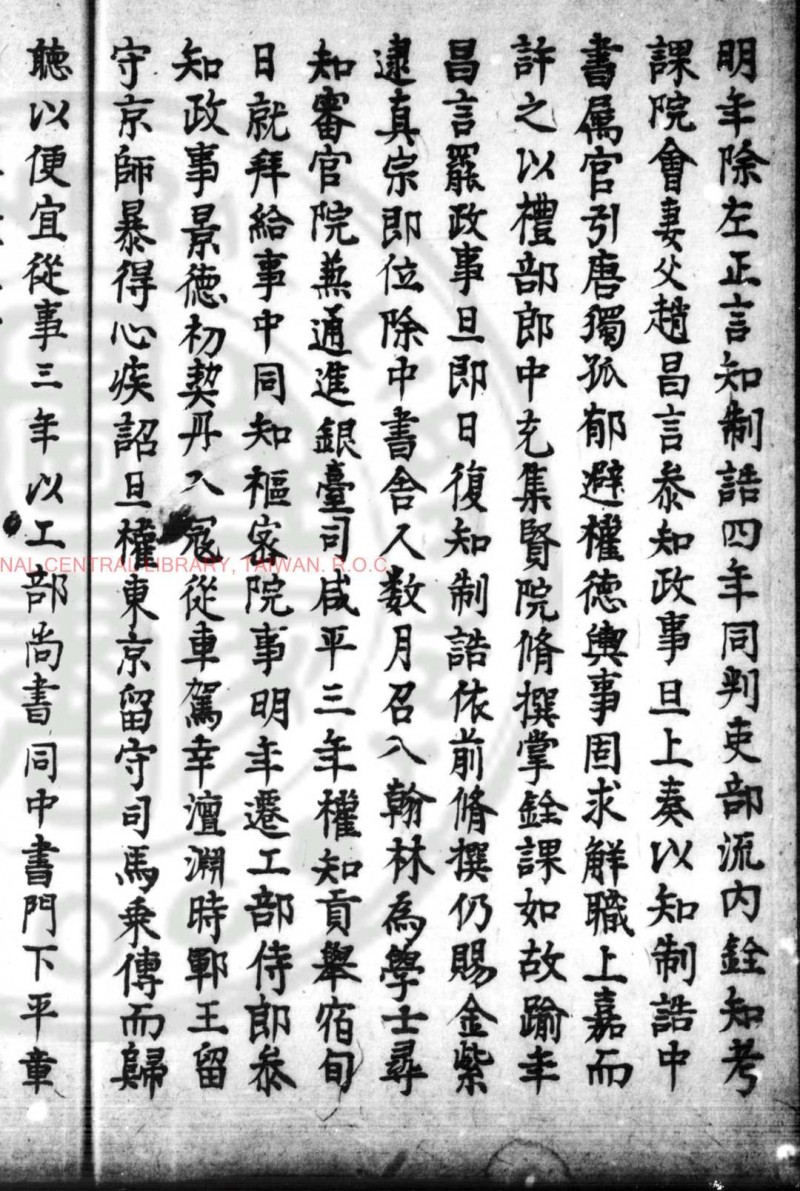 明年除左正言知制誥四年同判吏部流内銓知考
課院會妻父趙昌言叅知政事旦上奏以知制誥中
書属官引唐獨孤郁避權德輿事固求解職上嘉而
許之以禮部郎中充集賢院脩撰掌銓課如故踰年
昌言罷政事旦即日復知制誥依前脩撰仍賜金紫
逮真宗即位除中書舍人数月召入翰林為學士尋
知審官院兼通進銀臺司咸平三年權知貢舉宿旬
日就拜給事中同知樞密院事明年遷工部侍郎叅
知政事景德初契丹入冦從車駕幸澶淵時鄆王留
守京師暴得心疾詔旦權東京留守司馬乘傳而歸
聽以便宜從事三年以工部尚書同中書門下平章
NAL CENTRAL LIBRARY, TAIWAN. R.O.C